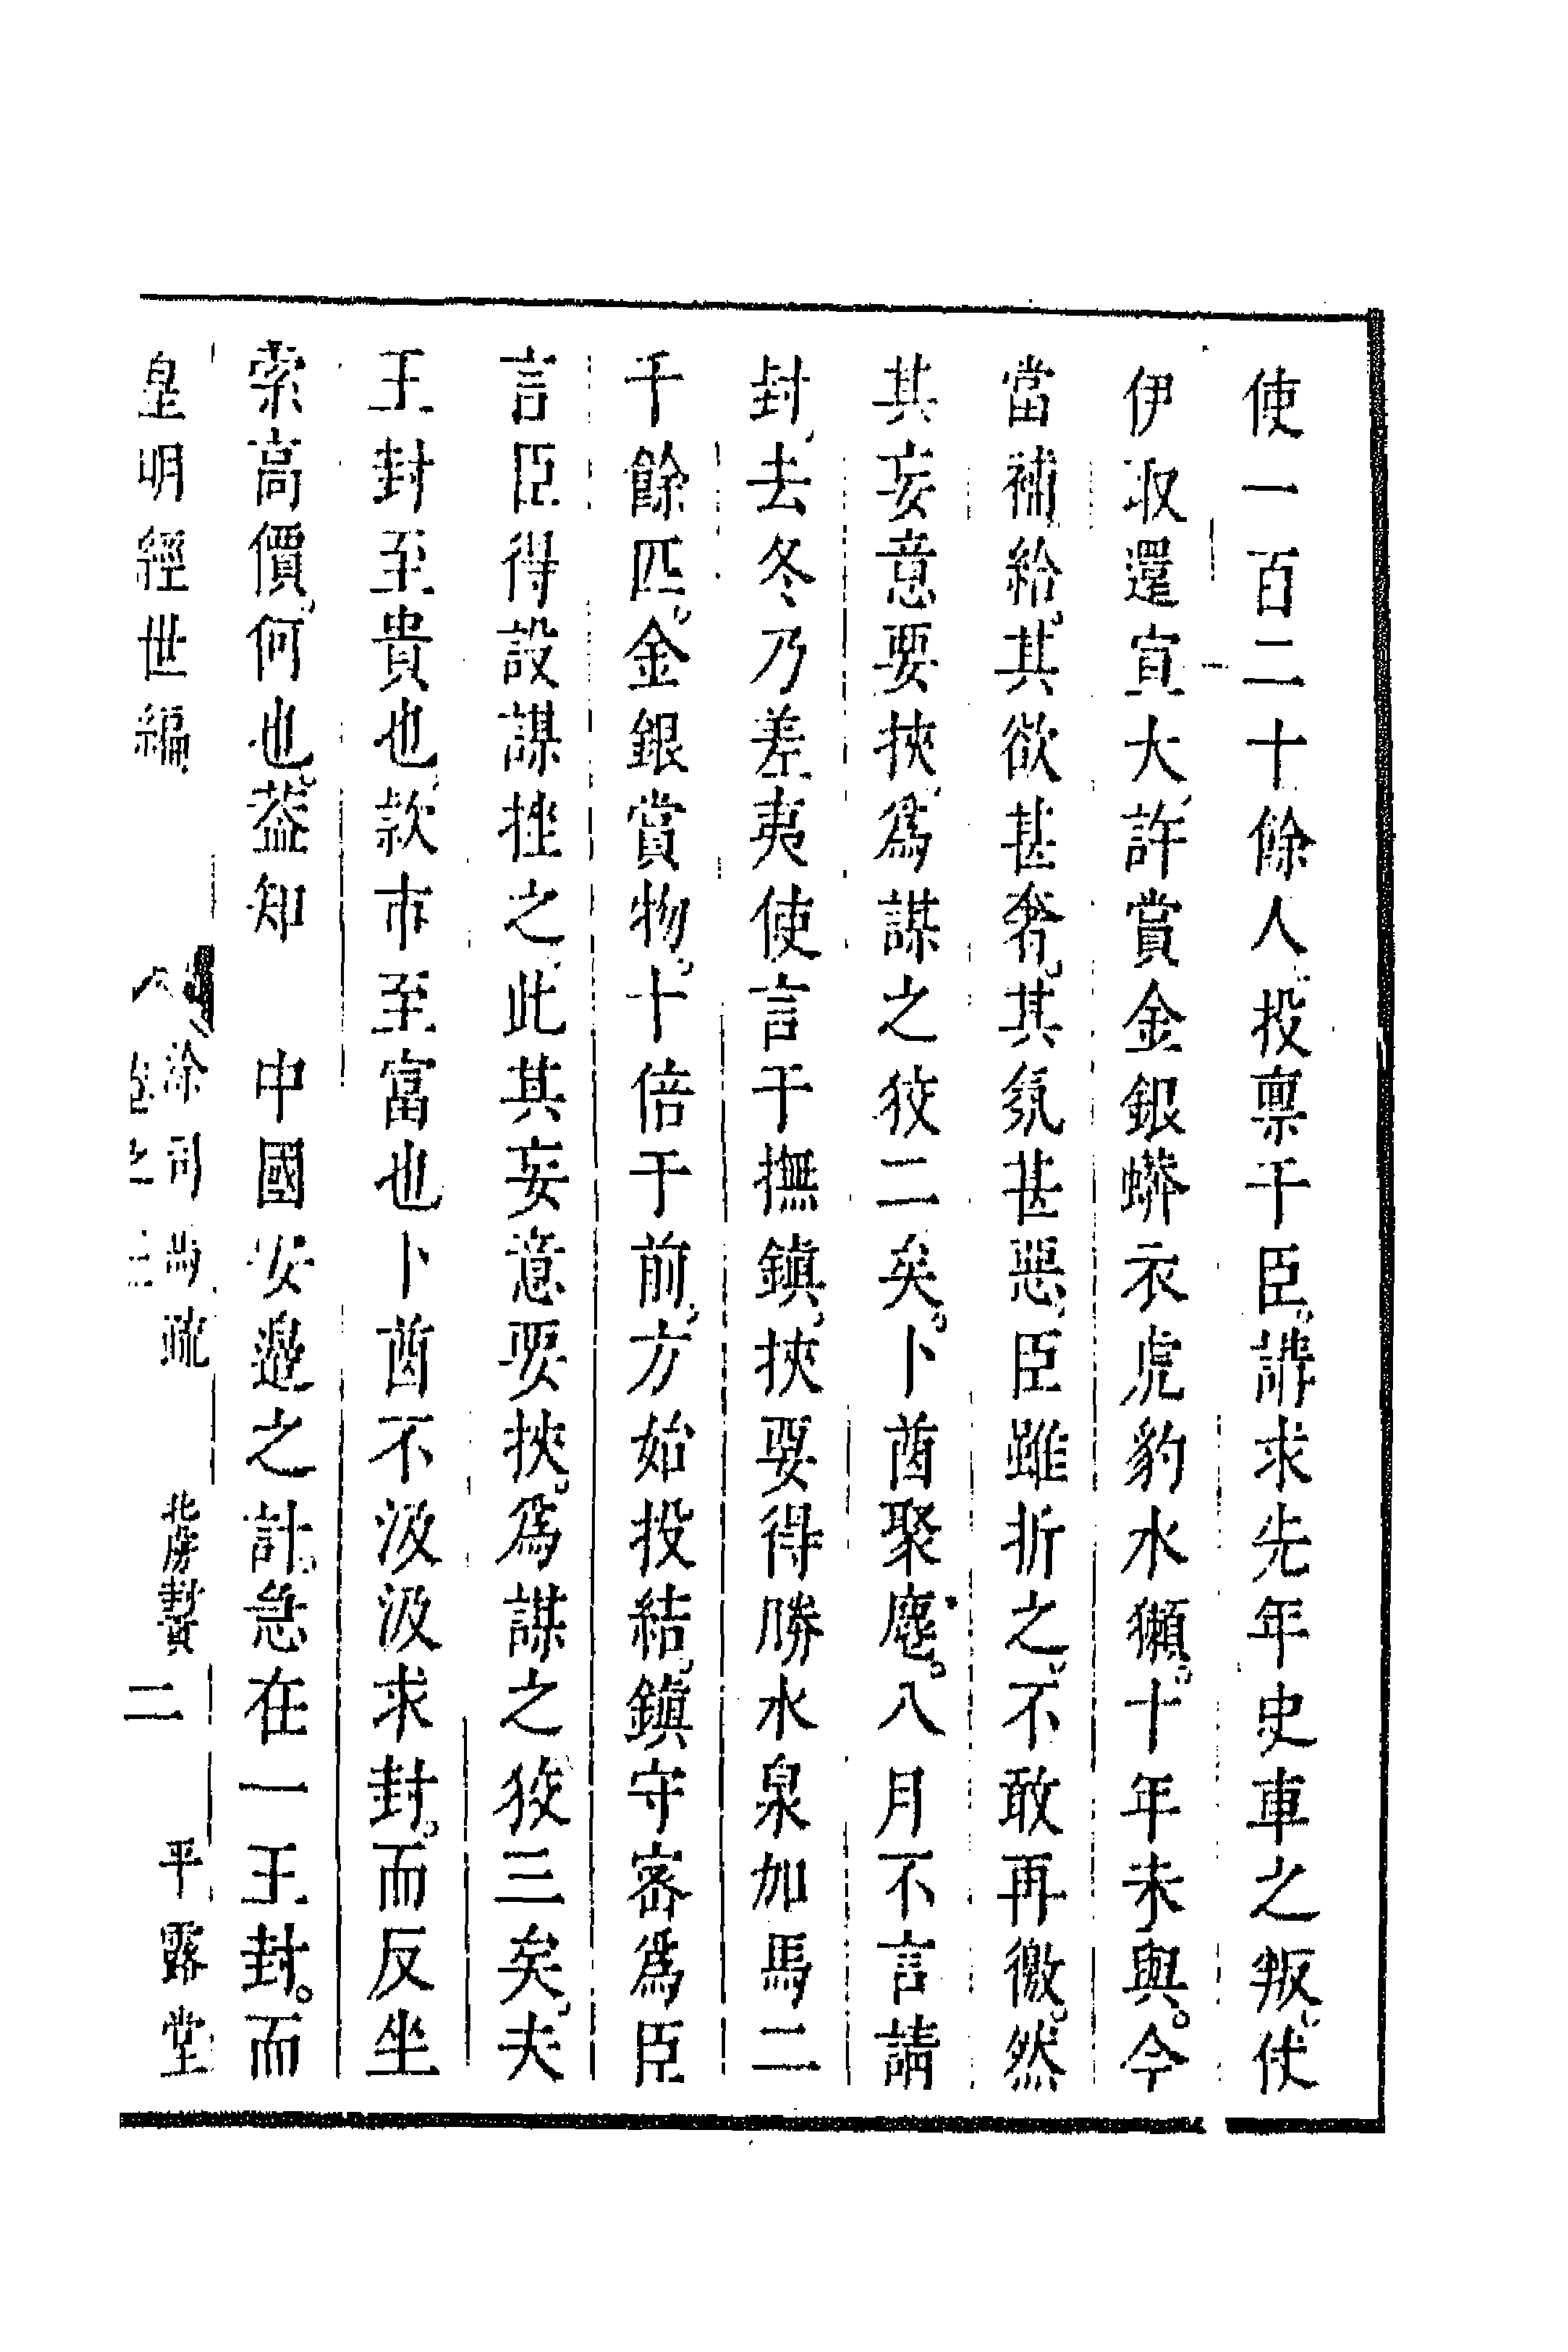 使一百二十餘人投稟干臣講求先年史車之叛仗
伊取還宣大許賞金銀蟒衣虎豹水獺十年未與今
當補給其欲甚奢其氛甚惡臣雖折之不敢再徼然
其妄意要挾爲謀之狡二矣卜酋聚麀八月不言請
封去冬乃差夷使言于撫鎮挾要得勝水泉加馬二
千餘匹金銀賞物十倍于前方始投結鎮守密爲臣
言臣得設謀挫之此其妄意要挾爲謀之狡三矣夫
王封至貴也款市至富也卜酋不汲汲求封而反坐
索高價何也葢知　中國安邊之計急在一王封而
皇明經世編
涂司馬疏　北虜封貢　二　平露堂